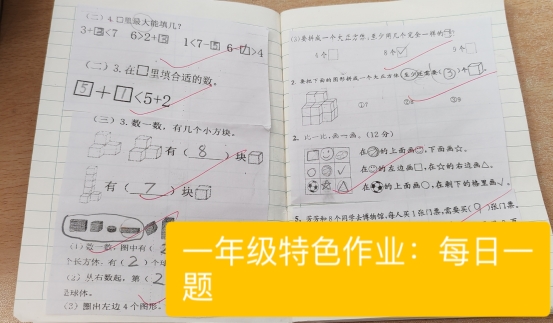 (二) 4. □里最大能填几?
3+2<7 6>2+3 1<7-5 6-1>4
(二) 3. 在□里填合适的数。
5+1<5+2
(三) 3. 数一数,有几个小方块。
有(8)块
有(7)块
(1) 数一数,图中有(2
个长方体,有(2)个球
(2) 从右数起,第(2
是球体。
(3) 圈出左边4个图形。
(1)要拼成一个大正方体,至少用几个完全一样的
6个□ 8个☑
2. 要把下面的图形拼成一个大正方体,至少还需要(3)个
①7 ③9
2. 比一比,画一画。(12分)
在 的上面画○,下面画☆。
在 的左边画□,在☆的右边画△。
在 的上面画○,在剩下的格里画✓。
5. 芳芳和8个同学去博物馆,每人买1张门票,需要买(9)张门票。
一年级特色作业:每日一
题